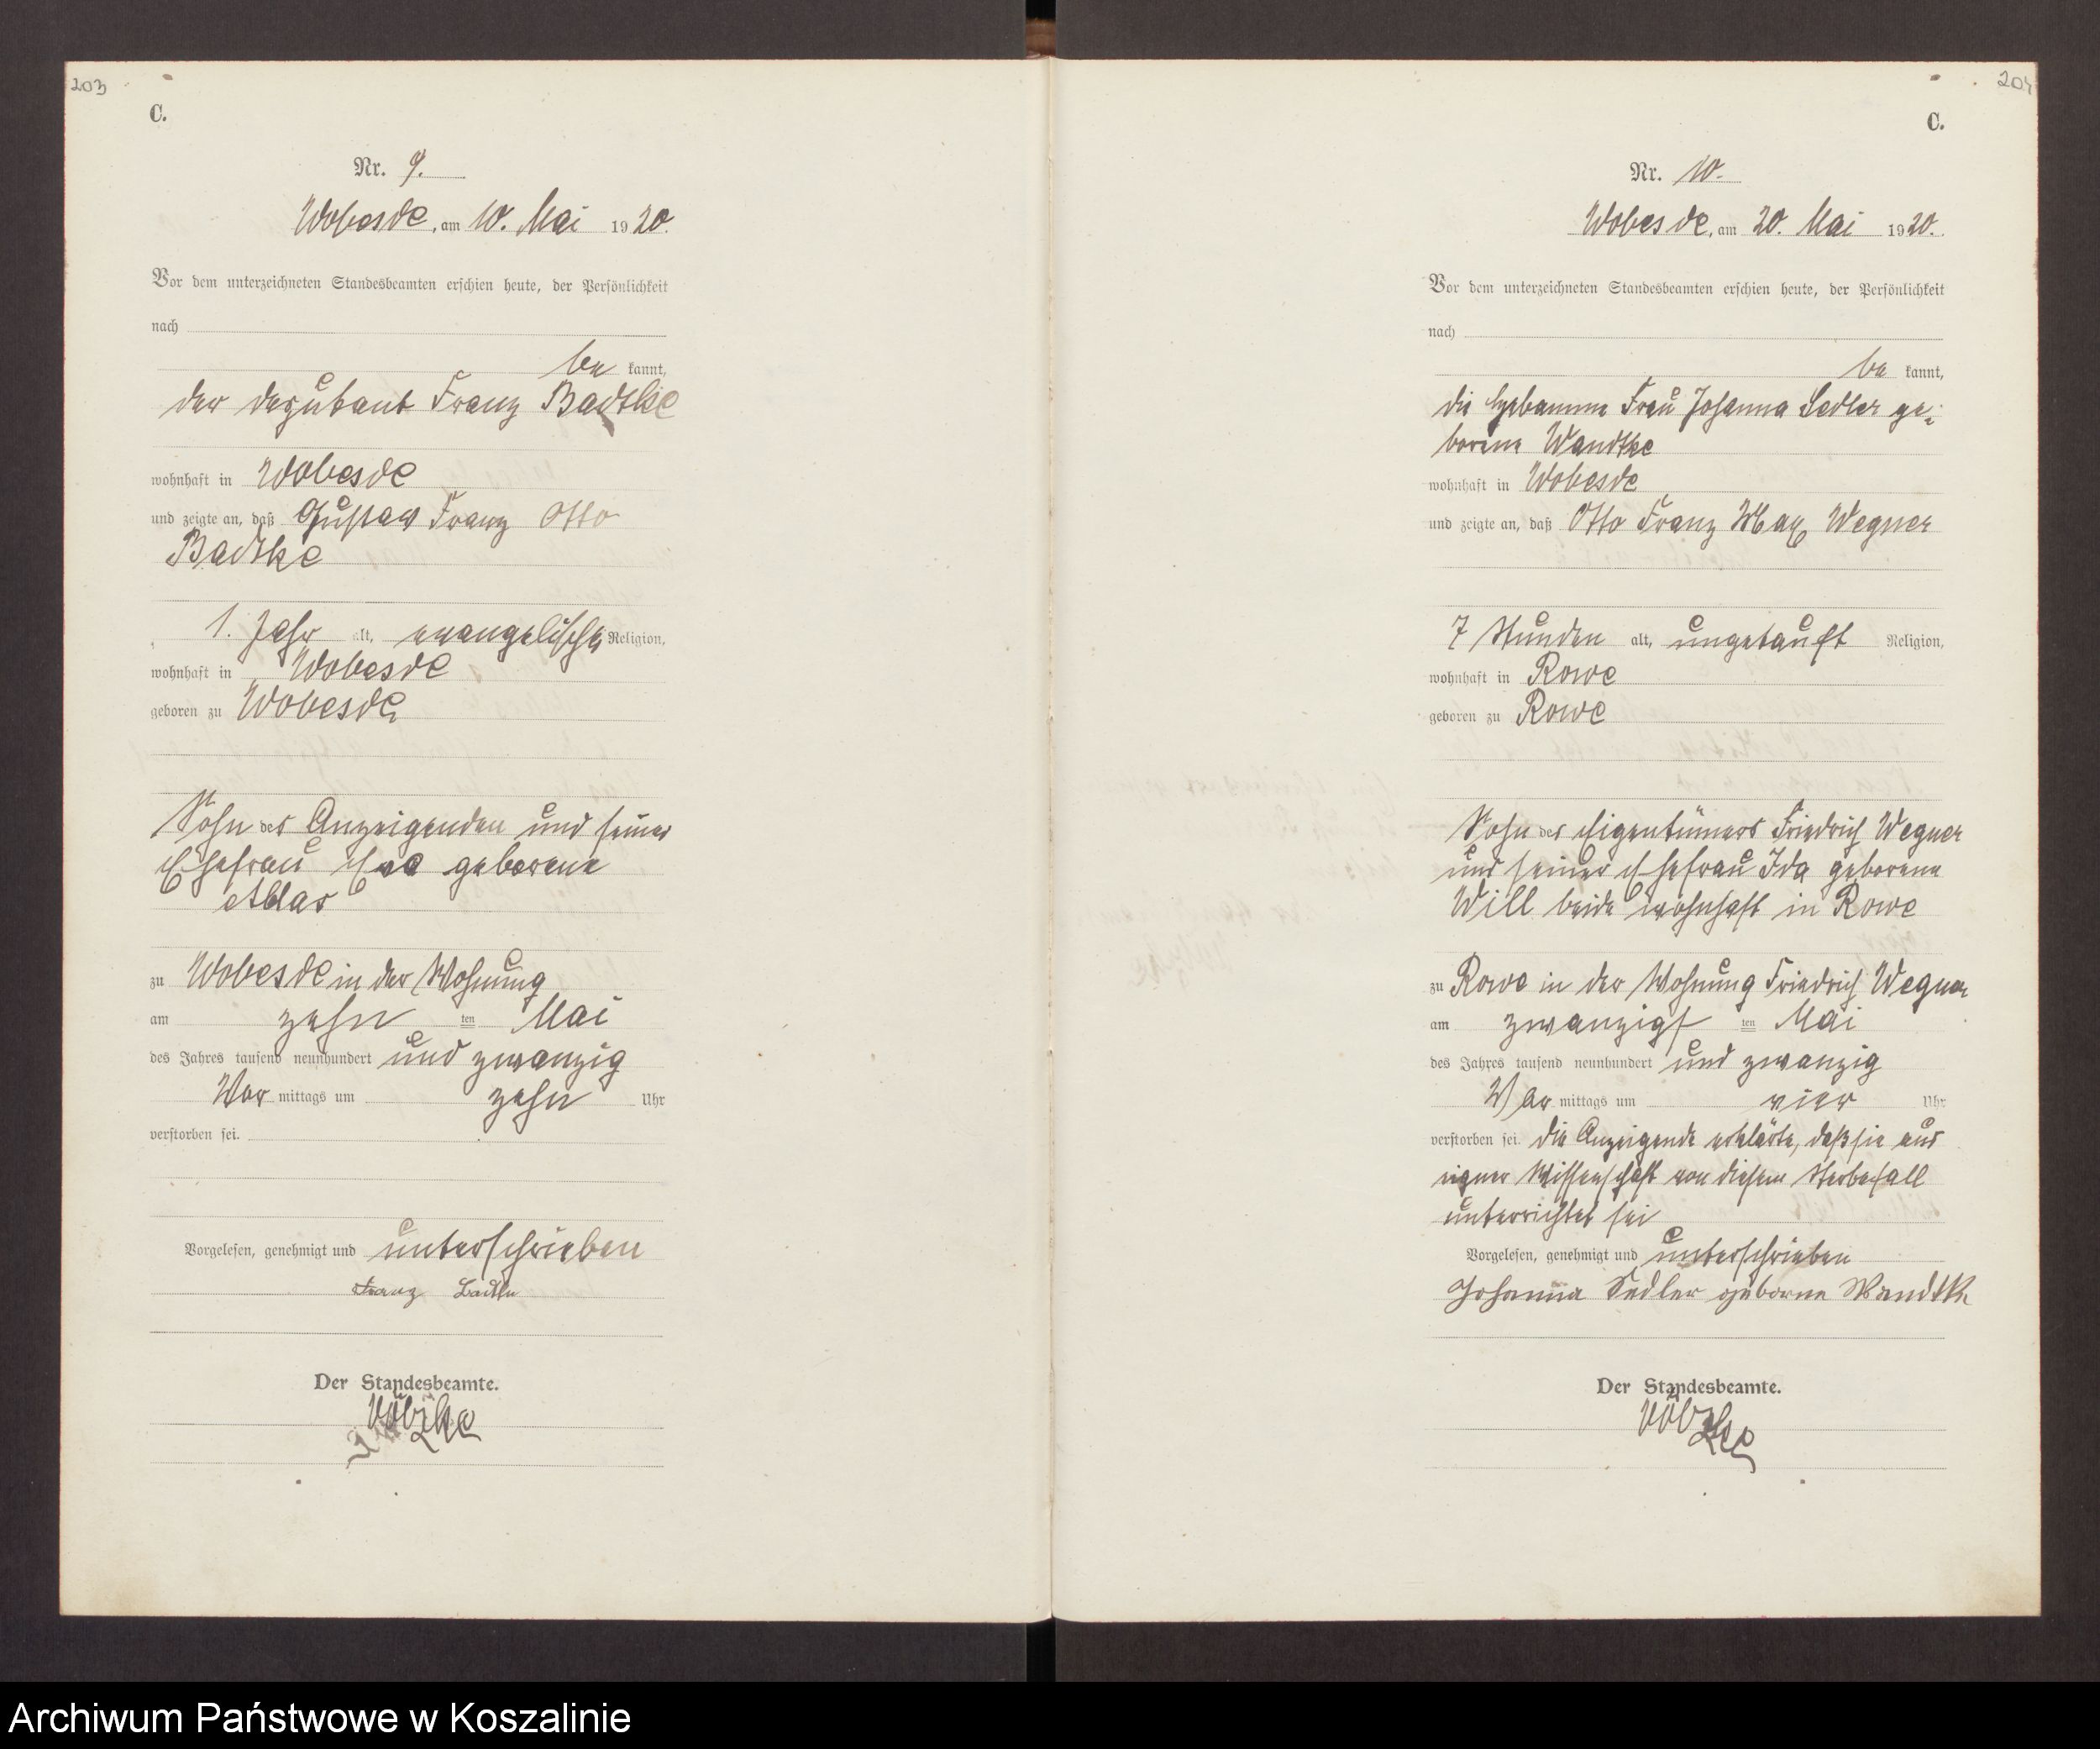 203
C.
Nr. 9.
Wobesde, am 10. Mai 1920.
Vor dem unterzeichneten Standesbeamten erschien heute, der Persönlichkeit
nach
be kannt,
der Deputant Franz Badtke
wohnhaft in Wobesde
und zeigte an, daß Gustav Franz Otto
Badtke
1. Jahr alt, evangelischer Religion,
wohnhaft in Wobesde
geboren zu Wobesde
Sohn des Anzeigenden und seiner
Ehefrau geborene
zu Wobesde in der Wohnung
am zehn ten Mai
des Jahres tausend neunhundert und zwanzig
Vor mittags um zehn Uhr
verstorben sei.
Vorgelesen, genehmigt und unterschrieben
Franz Badtke
Der Standesbeamte.
204
C.
Nr. 10.
Wobesde, am 20. Mai 1920.
Vor dem unterzeichneten Standesbeamten erschien heute, der Persönlichkeit
nach
be kannt,
die Hebamme Frau Johanna Sedler ge-
borene Wandtke
wohnhaft in Wobesde
und zeigte an, daß Otto Franz Max Wegner
7 Stunden alt, ungetauft Religion,
wohnhaft in Rowe
geboren zu Rowe
Sohn des Eigentümers Friedrich Wegner
und seiner Ehefrau Ida geborene
Will beide wohnhaft in Rowe
zu Rowe in der Wohnung Friedrich Wegner
am zwanzigs ten Mai
des Jahres tausend neunhundert und zwanzig
Vor mittags um vier Uhr
verstorben sei. Die Anzeigende erklärte, daß sie aus
eigner Wissenschaft von diesem Sterbefall
unterrichtet sei
Vorgelesen, genehmigt und unterschrieben
Johanna Sedler geborne Wandtke
Der Standesbeamte.
Archiwum Państwowe w Koszalinie